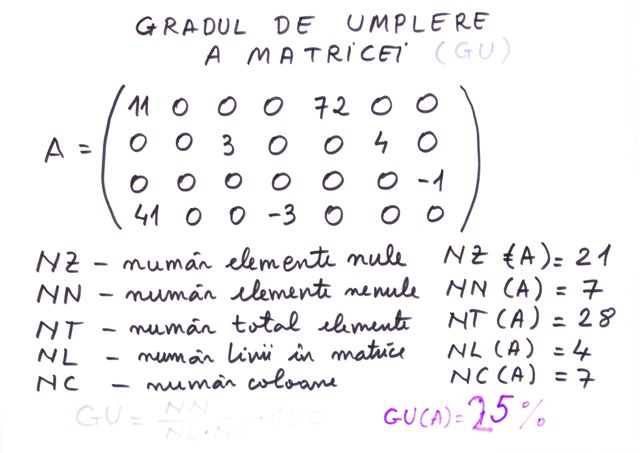 GRADUL DE UMPLERE
A MATRICEI (GU)
A =
11 0 0 0 72 0 0
0 0 3 0 0 4 0
0 0 0 0 0 0 -1
41 0 0 -3 0 0 0
NZ - număr elemente nule NZ (A) = 21
NN - număr elemente nenule NN (A) = 7
NT - număr total elemente NT (A) = 28
NL - număr linii în matrice NL (A) = 4
NC - număr coloane NC (A) = 7
GU = NN / NL·NC · 100 GU(A) = 25%